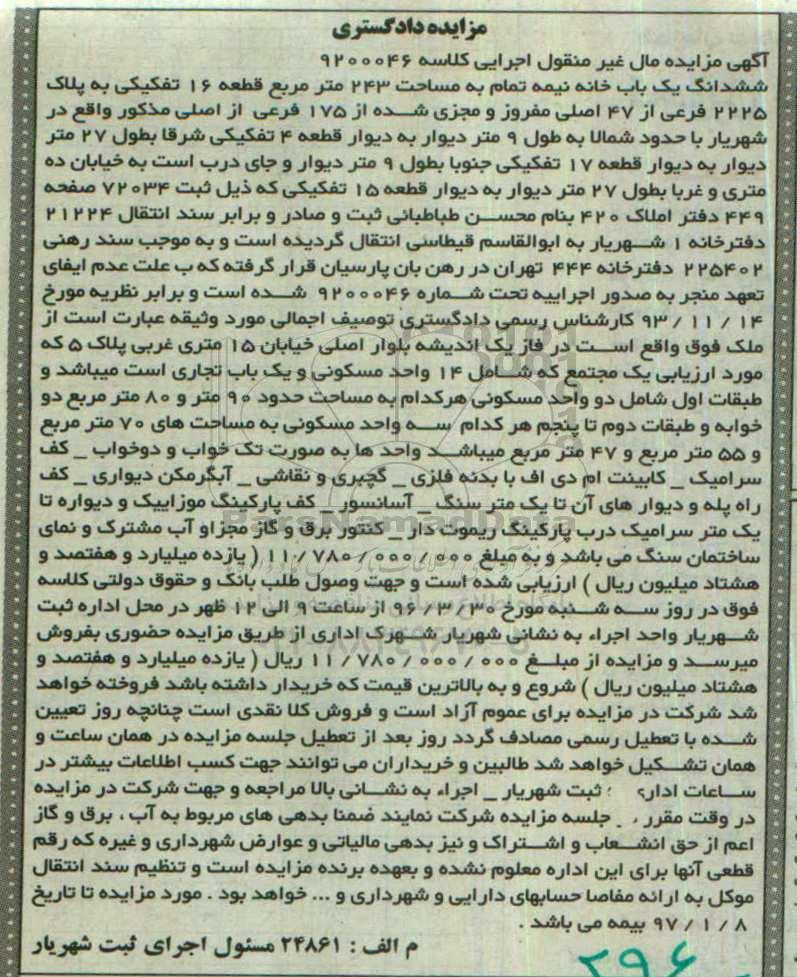 مزایده دادگستری
آگهی مزایده مال غیر منقول اجرایی کلاسه ۹۲۰۰۰۴۶
ششدانگ یک باب خانه نیمه تمام به مساحت ۲۴۳ متر مربع قطعه ۱۶ تفکیکی به پلاک
۲۲۲۵ فرعی از ۴۷ اصلی مفروز و مجزی شده از ۱۷۵ فرعی از اصلی مذکور واقع در
شهریار با حدود شمالا به طول ۹ متر دیوار به دیوار قطعه ۴ تفکیکی شرقا بطول ۲۷ متر
دیوار به دیوار قطعه ۱۷ تفکیکی جنوبا بطول ۹ متر دیوار و جای درب است به خیابان ده
متری و غربا بطول ۲۷ متر دیوار به دیوار قطعه ۱۵ تفکیکی که ذیل ثبت ۷۲۰۳۴ صفحه
۴۴۹ دفتر املاک ۴۲۰ بنام محسن طباطبائی ثبت و صادر و برابر سند انتقال ۲۱۲۲۴
دفترخانه ۱ شهریار به ابوالقاسم قیطاسی انتقال گردیده است و به موجب سند رهنی
۲۲۵۴۰۲ دفترخانه ۴۴۴ تهران در رهن بان پارسیان قرار گرفته که ب علت عدم ایفای
تعهد منجر به صدور اجراییه تحت شماره ۹۲۰۰۰۴۶ شده است و برابر نظریه مورخ
۹۳/۱۱/۱۴ کارشناس رسمی دادگستری توصیف اجمالی مورد وثیقه عبارت است از
ملک فوق واقع است در فاز یک اندیشه بلوار اصلی خیابان ۱۵ متری غربی پلاک ۵ که
مورد ارزیابی یک مجتمع که شامل ۱۴ واحد مسکونی و یک باب تجاری است میباشد و
طبقات اول شامل دو واحد مسکونی هرکدام به مساحت حدود ۹۰ متر و ۸۰ متر مربع دو
خوابه و طبقات دوم تا پنجم هر کدام سه واحد مسکونی به مساحت های ۷۰ متر مربع
و ۵۵ متر مربع و ۴۷ متر مربع میباشد واحد ها به صورت تک خواب و دوخواب _ کف
سرامیک _ کابینت ام دی اف با بدنه فلزی _ گچبری و نقاشی _ آبگرمکن دیواری _ کف
راه پله و دیوار های آن تا یک متر سنگ _ آسانسور _ کف پارکینگ موزاییک و دیواره تا
یک متر سرامیک درب پارکینگ ریموت دار _ کنتور برق و گاز مجزاو آب مشترک و نمای
ساختمان سنگ می باشد و به مبلغ ۱۱/۷۸۰/۰۰۰/۰۰۰ ( یازده میلیارد و هفتصد و
هشتاد میلیون ریال ) ارزیابی شده است و جهت وصول طلب بانک و حقوق دولتی کلاسه
فوق در روز سه شنبه مورخ ۹۶/۳/۳۰ از ساعت ۹ الی ۱۲ ظهر در محل اداره ثبت
شهریار واحد اجراء به نشانی شهریار شهرک اداری از طریق مزایده حضوری بفروش
میرسد و مزایده از مبلغ ۱۱/۷۸۰/۰۰۰/۰۰۰ ریال ( یازده میلیارد و هفتصد و
هشتاد میلیون ریال ) شروع و به بالاترین قیمت که خریدار داشته باشد فروخته خواهد
شد شرکت در مزایده برای عموم آزاد است و فروش کلا نقدی است چنانچه روز تعیین
شده با تعطیل رسمی مصادف گردد روز بعد از تعطیل جلسه مزایده در همان ساعت و
همان تشکیل خواهد شد طالبین و خریداران می توانند جهت کسب اطلاعات بیشتر در
ساعات ثبت شهریار _ اجراء به نشانی بالا مراجعه و جهت شرکت در مزایده
در وقت مقرر جلسه مزایده شرکت نمایند ضمنا بدهی های مربوط به آب ، برق و گاز
اعم از حق انشعاب و اشتراک و نیز بدهی مالیاتی و عوارض شهرداری و غیره که رقم
قطعی آنها برای این اداره معلوم نشده و بعهده برنده مزایده است و تنظیم سند انتقال
موکل به ارائه مفاصا حسابهای دارایی و شهرداری و ... خواهد بود . مورد مزایده تا تاریخ
۹۷/۱/۸ بیمه می باشد .
م الف : ۲۴۸۶۱ مسئول اجرای ثبت شهریار
۲۹۶